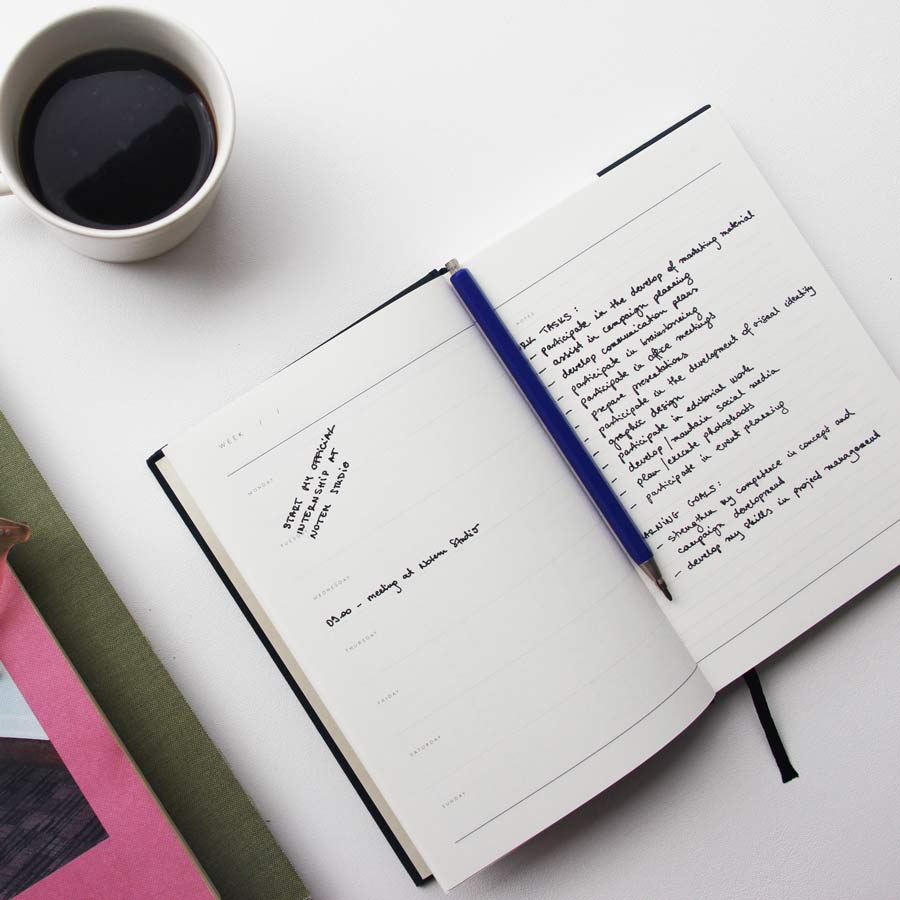 WEEK / /
MONDAY
START MY OFFICIAL
INTERNSHIP AT
NOTEM STUDIO
TUESDAY
WEDNESDAY
09.00 - meeting at Notem Studio
THURSDAY
FRIDAY
SATURDAY
SUNDAY
NOTES
TASKS:
- participate in the develop of marketing material
- assist in campaign planning
- develop communication plans
- participate in brainstorming
- participate in office meetings
- prepare presentations
- participate in the development of visual identity
- graphic design
- participate in editorial work
- develop/maintain social media
- plan/execute photoshoots
- participate in event planning
GOALS:
- strengthen my competence in concept and
campaign development
- develop my skills in project management